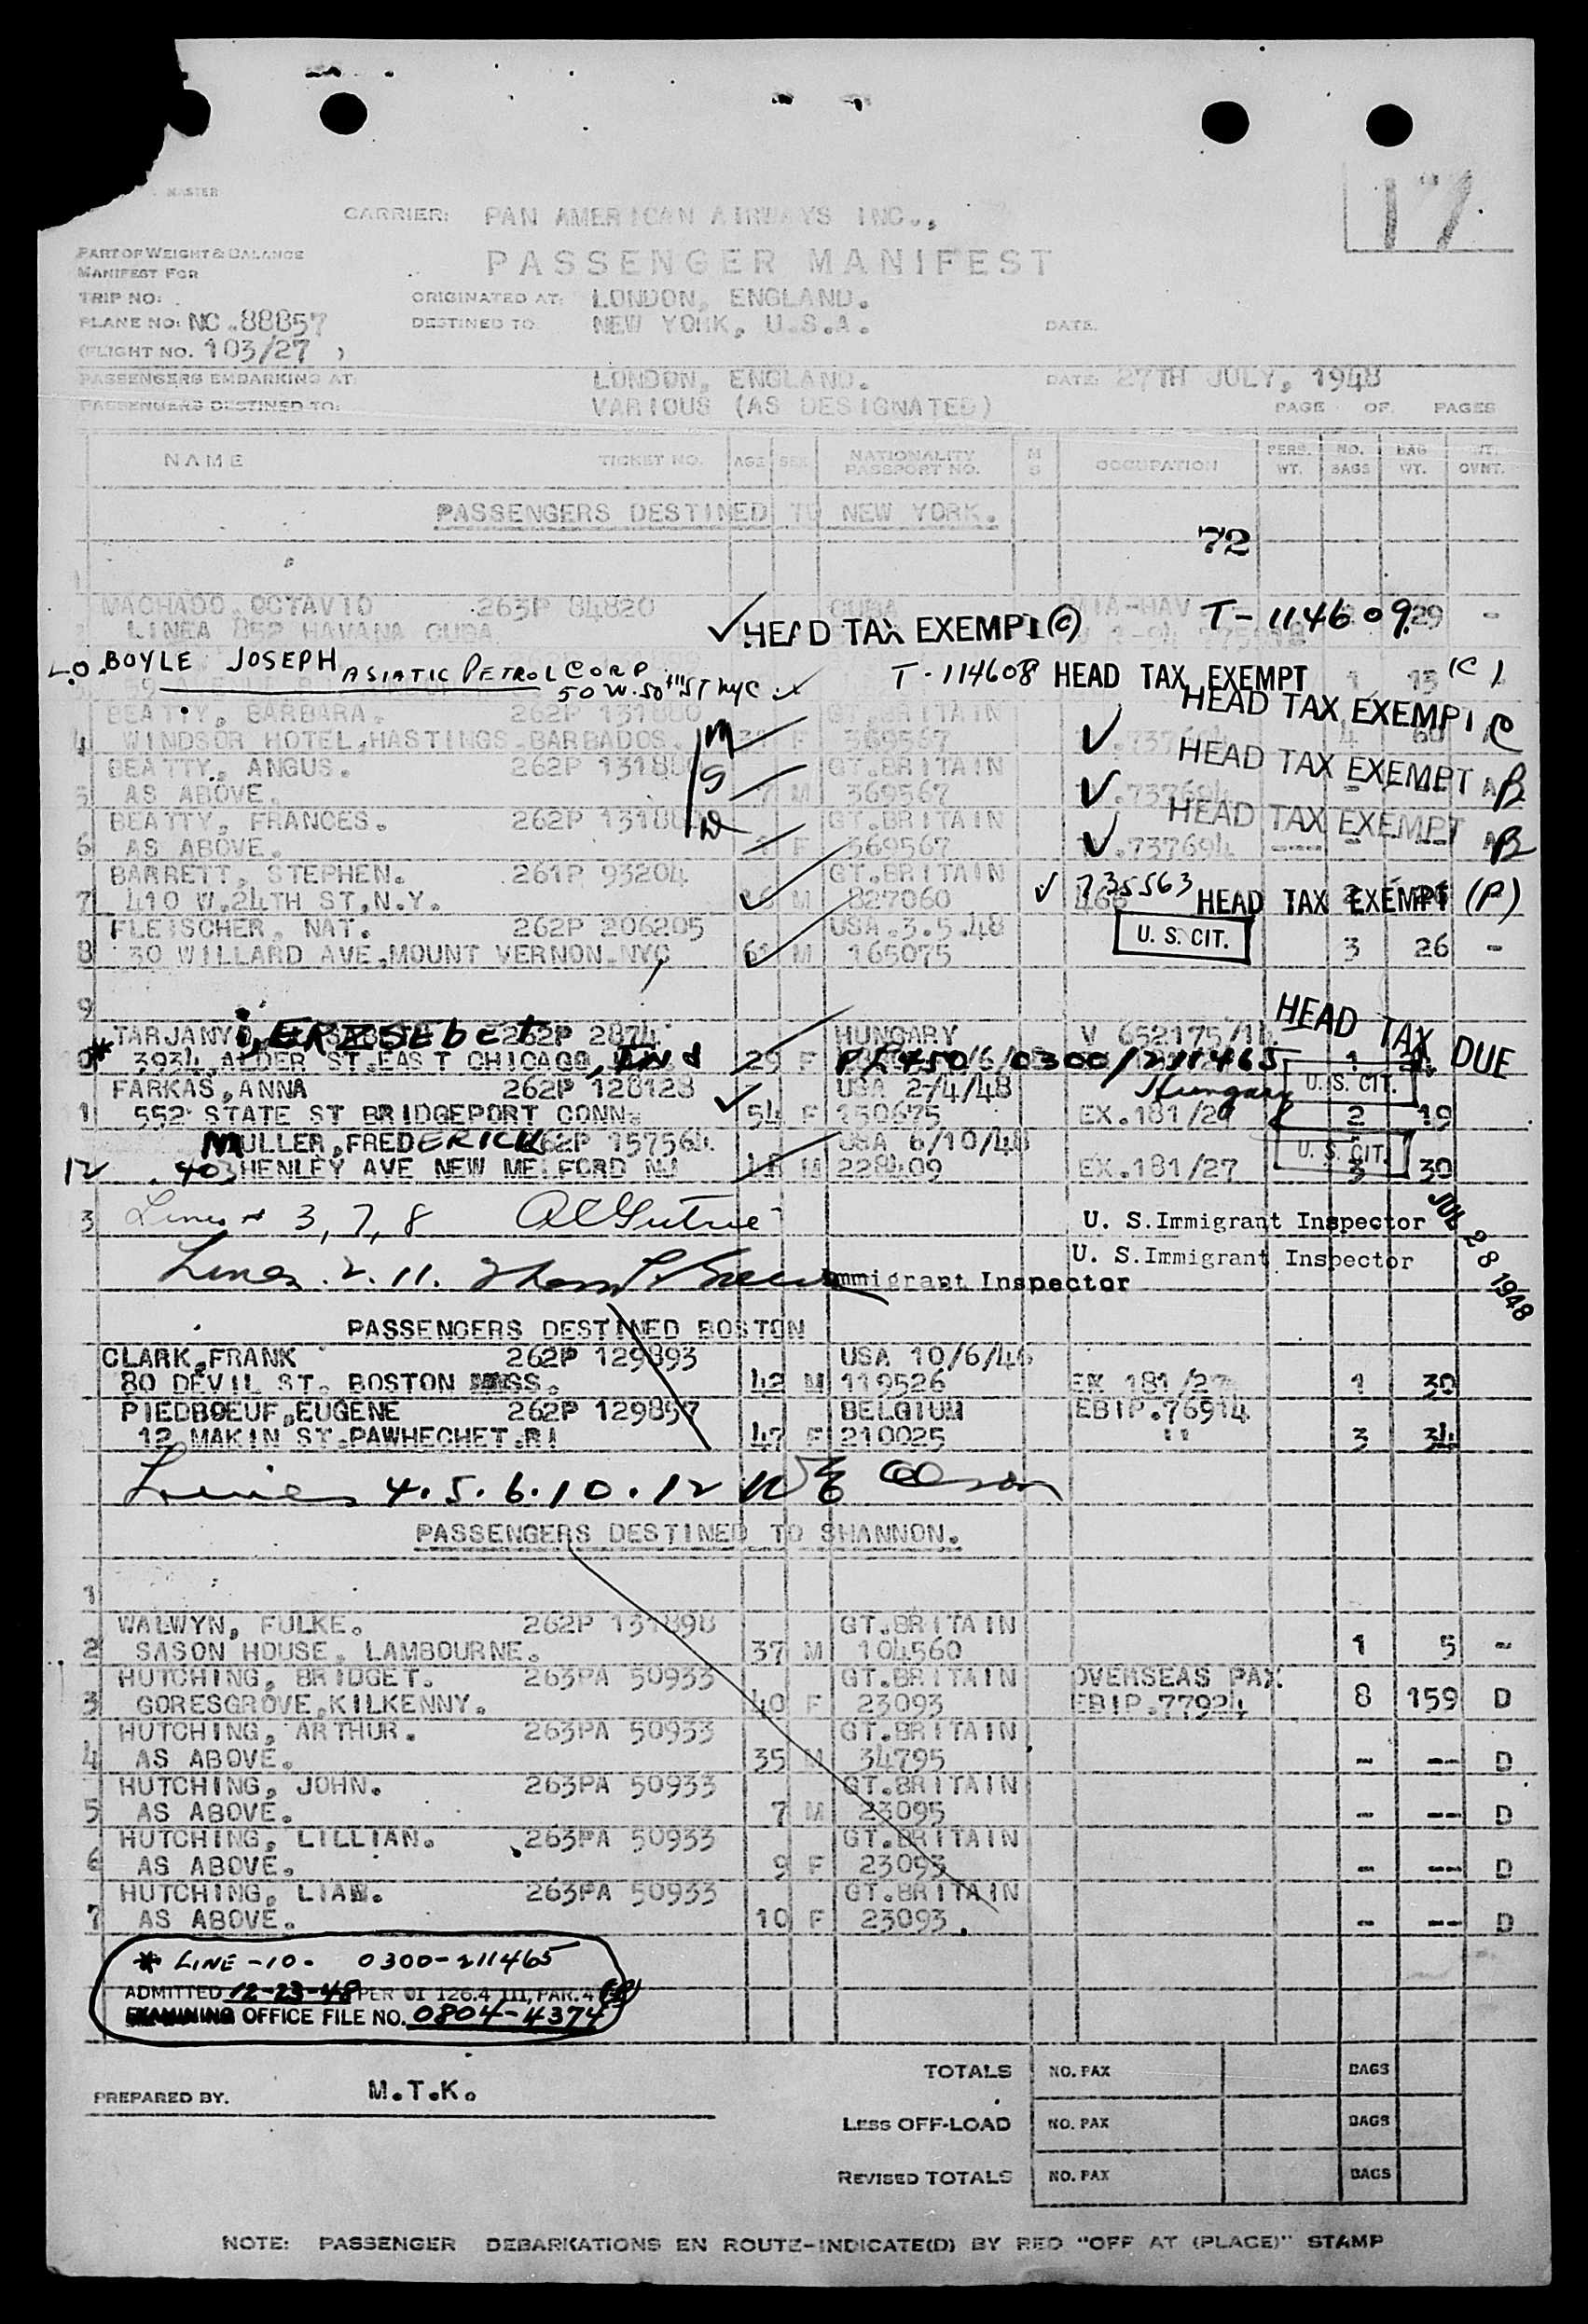 MASTER
17
CARRIER: PAN AMERICAN AIRWAYS INC.,
PART OF WEIGHT & BALANCE
PASSENGER MANIFEST
MANIFEST FOR
TRIP NO:
ORIGINATED AT: LONDON, ENGLAND.
PLANE NO: NC.88857
DESTINED TO NEW YORK, U.S.A. DATE.
(FLIGHT NO. 103/27 )
PASSENGERS EMBARKING AT: LONDON, ENGLAND. DATE: 27TH JULY, 1948
PASSENGERS DESTINED TO: VARIOUS (AS DESIGNATED) PAGE OF PAGES
NAME TICKET NO. AGE SEX NATIONALITY PASSPORT NO. M S OCCUPATION PERS. WT. NO. BAGS BAG WT. INT. CVNT.
PASSENGERS DESTINED TO NEW YORK.
72
1
MACHADO, OCTAVIO 263P 84820 CUBA VIA-HAV T-114609 29 -
LINEA 852 HAVANA CUBA ✓ HEAD TAX EXEMPT (C)
L.O. BOYLE JOSEPH ASIATIC PETROL CORP T-114608 HEAD TAX EXEMPT 1 13 (C)
50 W. 50TH ST NYC ✓
BEATTY, BARBARA. 262P 131880 GT.BRITAIN HEAD TAX EXEMPT C
4 WINDSOR HOTEL, HASTINGS-BARBADOS. M F 369567 ✓ 4 60
BEATTY, ANGUS. 262P GT.BRITAIN HEAD TAX EXEMPT B
5 AS ABOVE. S 7 M 369567 ✓ .737694
BEATTY, FRANCES. 262P GT.BRITAIN HEAD TAX EXEMPT B
6 AS ABOVE. F 369567 ✓ .737694
BARRETT, STEPHEN. 261P 93204 GT.BRITAIN
7 410 W.24TH ST, N.Y. 26 M 827060 ✓ 735563 HEAD TAX EXEMPT (P)
FLEISCHER, NAT. 262P 206205 USA.3.5.48 U. S. CIT.
8 30 WILLARD AVE, MOUNT VERNON-NYC 61 M 165075 3 26 -
9
TARJANYI, ERZSEbet 262P 2874 HUNGARY V 652175/14 HEAD TAX DUE
* 3934, ALDER ST. EAST CHICAGO, INd 29 F 0300/211465 1
FARKAS, ANNA 262P 128128 USA 2/4/48 Hungary U. S. CIT.
1 552 STATE ST BRIDGEPORT CONN. 54 F 150675 EX.181/27 2 19
MULLER, FREDERICK 262P 157564 USA 6/10/48 U. S. CIT.
12 403 HENLEY AVE NEW MELFORD NJ M 228409 EX.181/27 3 30
3 Lines # 3, 7, 8 U. S. Immigrant Inspector
JUL 28 1948
U. S. Immigrant Inspector
Lines. 2. 11. Immigrant Inspector
PASSENGERS DESTINED BOSTON
CLARK, FRANK 262P 129893 USA 10/6/46
80 DEVIL ST. BOSTON MASS. 42 M 119526 EX 181/27 1 30
PIEDBOEUF, EUGENE 262P 129857 BELGIUM EBIP.76914
12 MAKIN ST. PAWHECHET.RI 47 F 210025 " 3 34
Lines 4. 5. 6. 10. 12 Olson
PASSENGERS DESTINED TO SHANNON.
1
WALWYN, FULKE. 262P 131898 GT.BRITAIN
2 SASON HOUSE, LAMBOURNE. 37 M 104560 1 5 -
HUTCHING, BRIDGET. 263PA 50933 GT.BRITAIN OVERSEAS PAX
3 GORESGROVE, KILKENNY. 40 F 23093 EBIP.77924 8 159 D
HUTCHING, ARTHUR. 263PA 50933 GT.BRITAIN
4 AS ABOVE. 35 M 34795 - -- D
HUTCHING, JOHN. 263PA 50933 GT.BRITAIN
5 AS ABOVE. 7 M 23095 - -- D
HUTCHING, LILLIAN. 263PA 50933 GT.BRITAIN
6 AS ABOVE. 9 F 23093 - -- D
HUTCHING, LIAN. 263PA 50933 GT.BRITAIN
7 AS ABOVE. 10 F 23093. - -- D
* LINE -10- 0300-211465
ADMITTED 12-23-48 PER OI 126.4 III, PAR. 4
EXAMINING OFFICE FILE NO. 0804-4374
TOTALS NO. PAX BAGS
PREPARED BY. M.T.K.
LESS OFF-LOAD NO. PAX BAGS
REVISED TOTALS NO. PAX BAGS
NOTE: PASSENGER DEBARKATIONS EN ROUTE-INDICATE(D) BY RED "OFF AT (PLACE)" STAMP